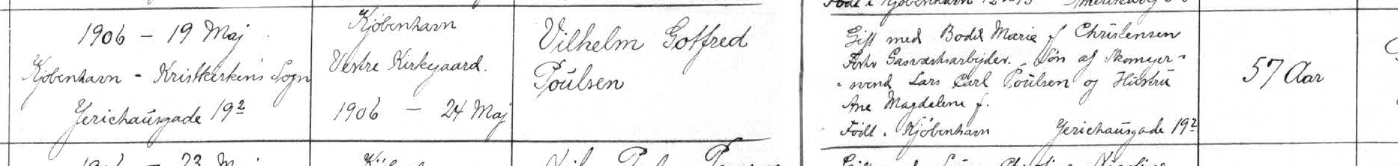 1906 – 19 Maj
Kjøbenhavn - Kristkirkens Sogn
Jerichausgade 19²
Kjøbenhavn
Vestre Kirkegaard.
1906 – 24 Maj
Vilhelm Gotfred
Poulsen
Gift med Bodil Marie f. Christensen
Forhv Gasværksarbejder. Søn af Skomager-
svend Lars Carl Poulsen og Hustru
Ane Magdalene f.
Født i Kjøbenhavn Jerichausgade 19²
57 Aar